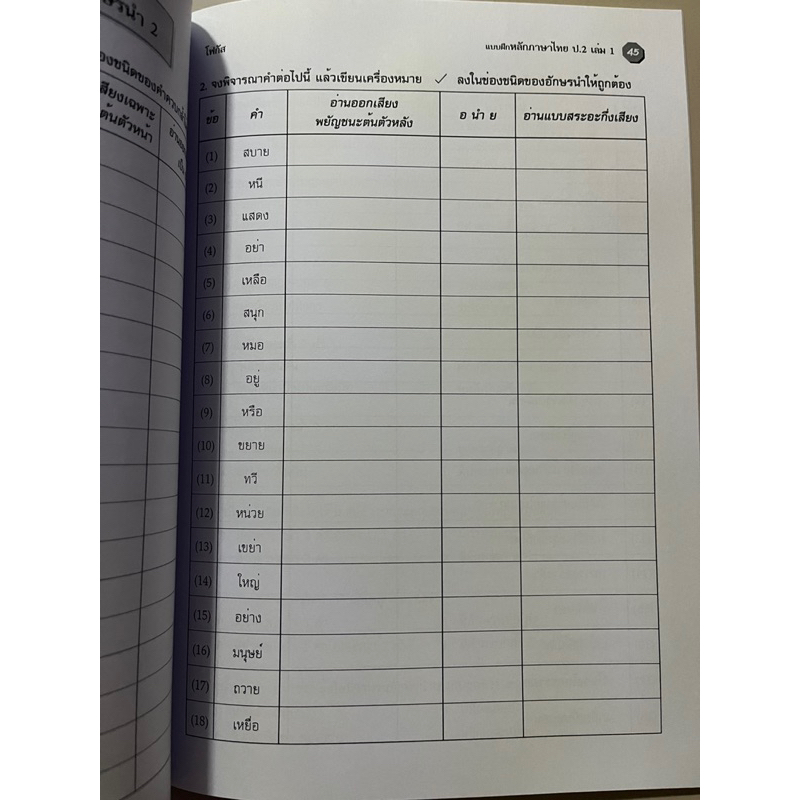 ษรนำ 2
โฟกัส
แบบฝึกหลักภาษาไทย ป.2 เล่ม 1 45
2. จงพิจารณาคำต่อไปนี้ แล้วเขียนเครื่องหมาย ✓ ลงในช่องชนิดของอักษรนำให้ถูกต้อง
สียงเฉพาะ
ต้นตัวหน้า
ข้อ คำ อ่านออกเสียง พยัญชนะต้นตัวหลัง อ นำ ย อ่านแบบสระอะกึ่งเสียง
(1) สบาย
(2) หนี
(3) แสดง
(4) อย่า
(5) เหลือ
(6) สนุก
(7) หมอ
(8) อยู่
(9) หรือ
(10) ขยาย
(11) ทวี
(12) หน่วย
(13) เขย่า
(14) ใหญ่
(15) อย่าง
(16) มนุษย์
(17) ถวาย
(18) เหยื่อ